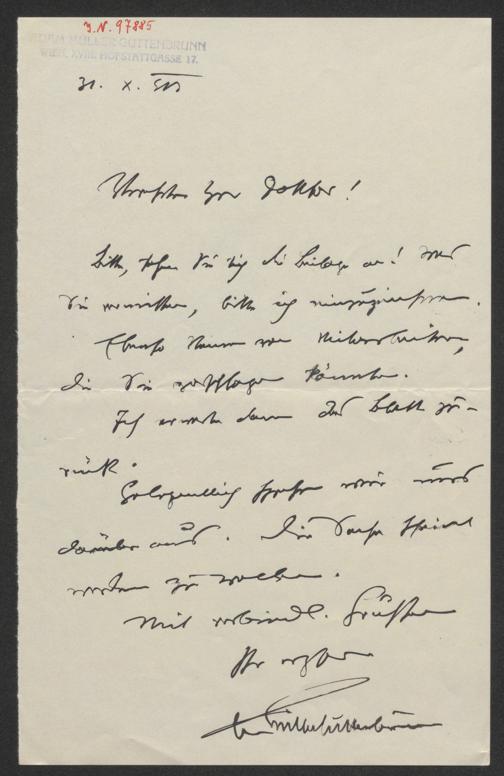 J.N. 97885
ADAM MÜLLER-GUTTENBRUNN
WIEN, XVIII. HOFSTATTGASSE 17.
31. X.
Verehrter Herr Doktor!
Bitte, sehen Sie sich die Beilage an! Was
Sie vermissen, bitte ich einzufügen.
Ebenso Namen von Mitarbeitern,
die Sie vorschlagen könnten.
Ich erwarte dann das Blatt zu-
rück.
Gelegentlich sprechen wir uns
darüber aus. Die Sache scheint
werden zu wollen.
Mit verbindl. Grüßen
Ihr ergebener
Müller-Guttenbrunn